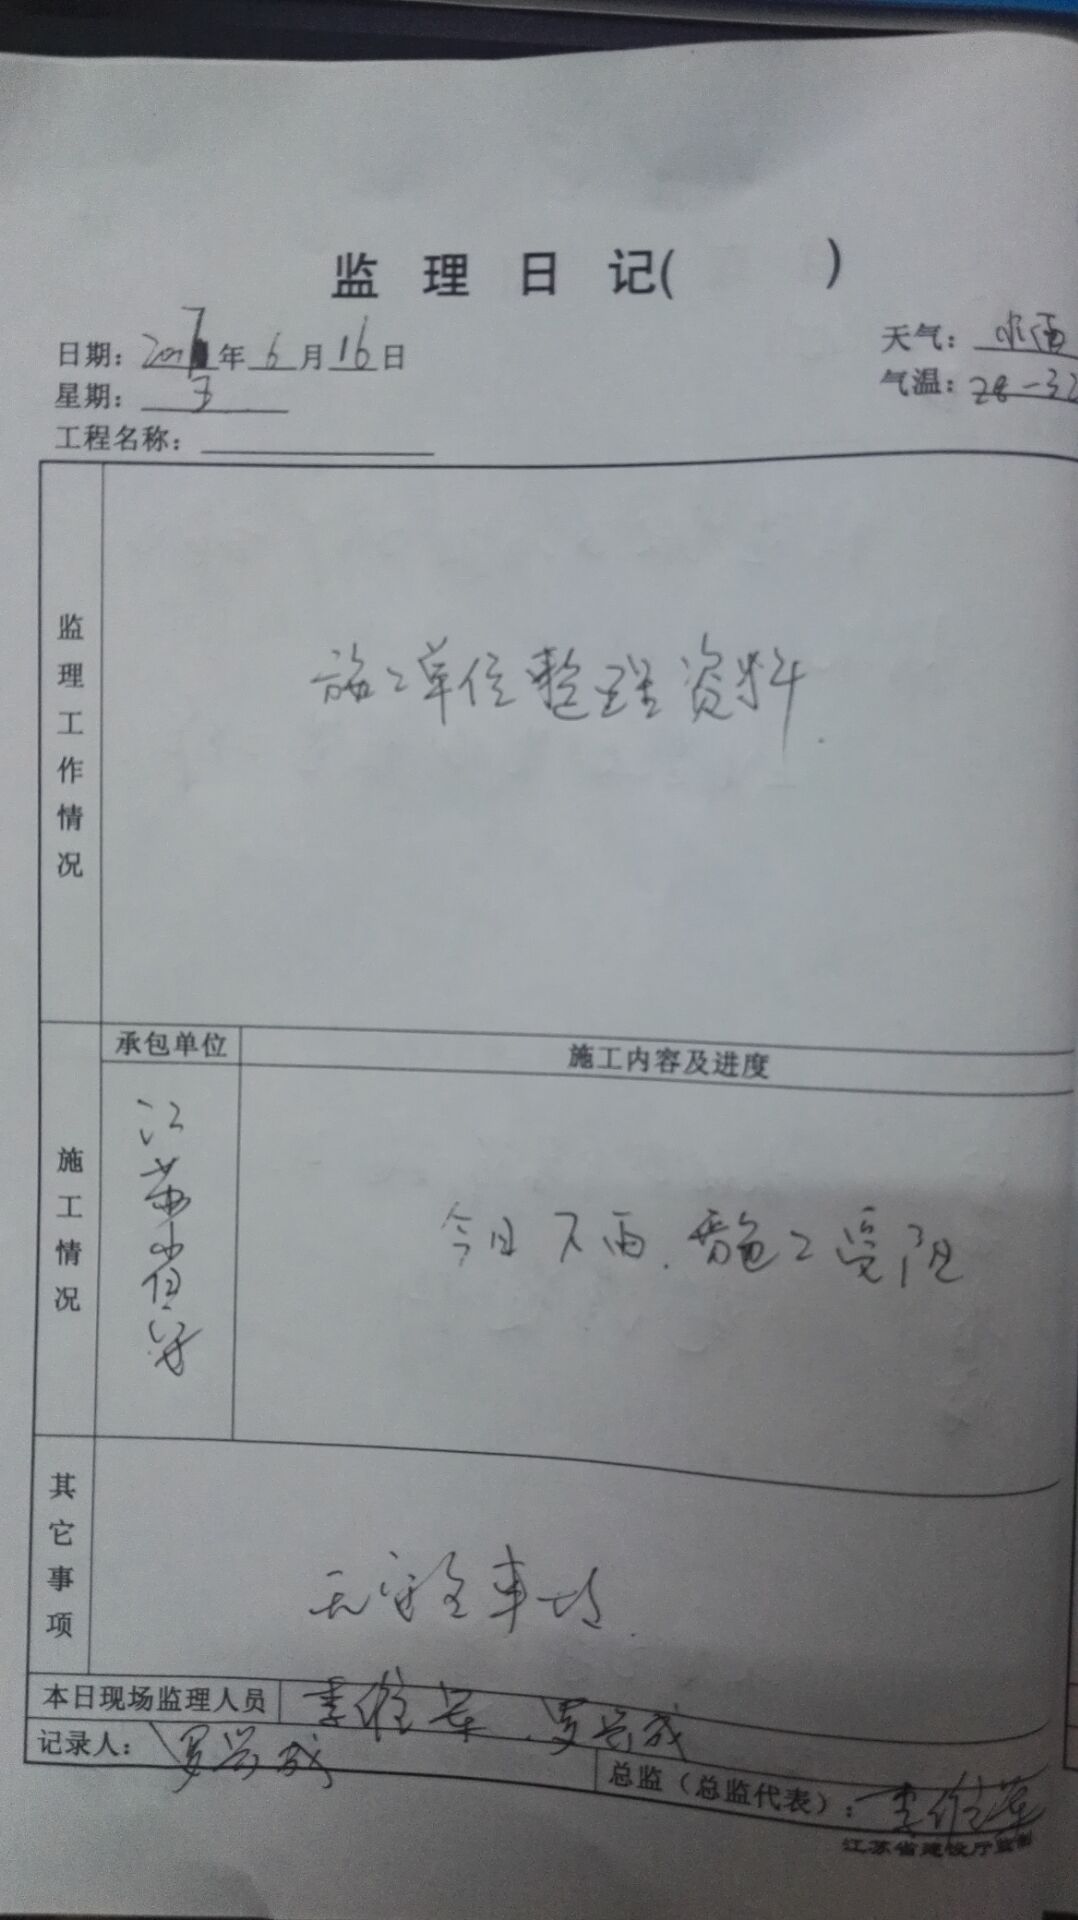 监理日记( )
日期：2017年6月16日
天气：小雨
星期：
气温：28-32
工程名称：
监理工作情况
施工单位整理资料.
施工情况
承包单位
施工内容及进度
江苏省
今日下雨.施工受阻
其它事项
无安全事故.
本日现场监理人员
李维军 罗兴成
记录人：罗兴成
总监（总监代表）：李维军
江苏省建设厅监制